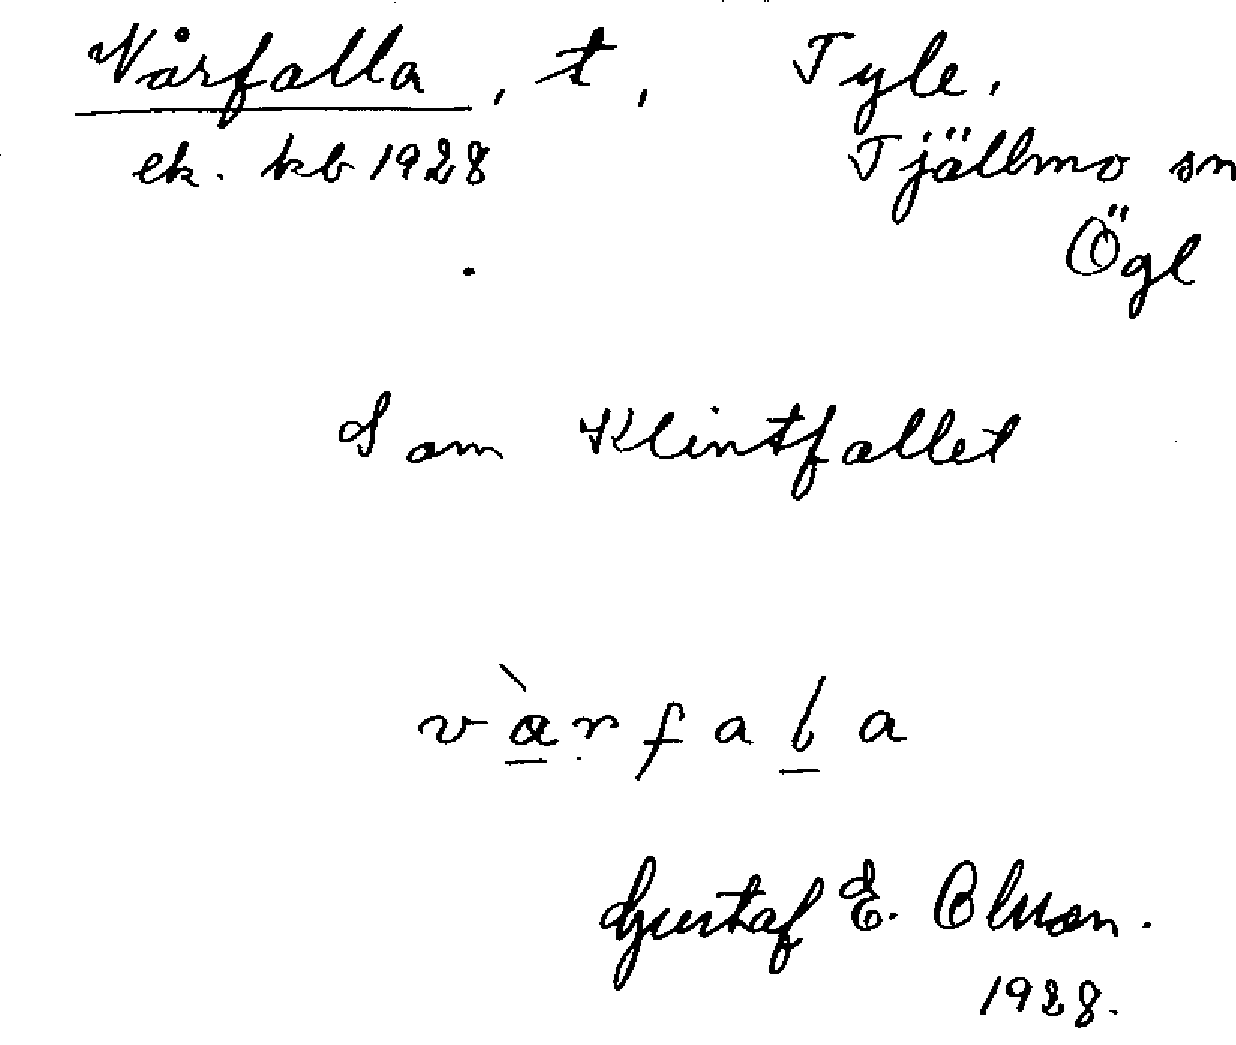 Vårfalla, t, Tyle,
ek. kb 1928 Tjällmo sn
Ögl
Som Klintfallet
v a r f a l a
Gustaf E. Olsson.
1928.